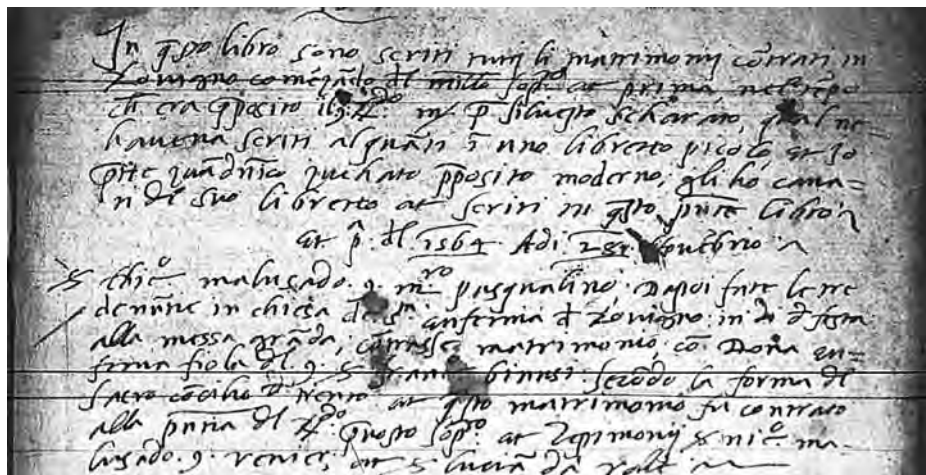 In q̄sto libro sono scritti tutti li matrimonij cōtrati in
Rovigno comēzādo dl millō sopto et prima nel tēpo
ch̄ era p̄posito il q. Rdo mr p̄ Silvestro Schāvato, qual ne
haveva scriti alquāti ī uno libretto picolo, et Io
p̄te p̄posito moderno, gli ho cava=
ti dl suo libretto et scriti in q̄sto pn̄te libro
et p̄. dl 1564. Adi novēbrio
s mico malusado. q. mro pasqualino, Dapoi fate le tre
denūtie in chiesa de sta eufemia d Rovigno in dì d festa
alla messa grāda, cōtrasse matrimonio, cō Dona eu=
femia fiola dl q. s binusi secōdo la forma dl
sacro cōcilio d trento et q̄sto matrimonio fu contrato
alla pn̄tia dl Rdo p̄posto sopto et testimonij s nico ma=
lusado. q. renier, et s lucia da